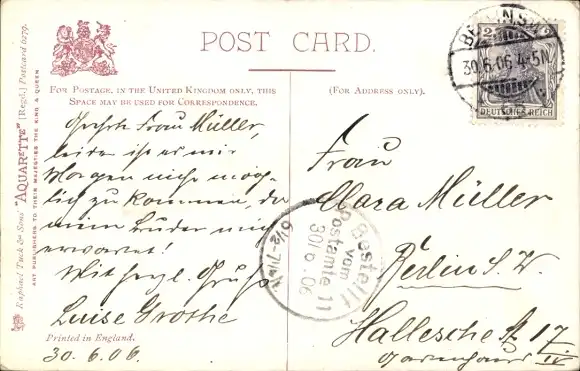 POST CARD.
FOR POSTAGE, IN THE UNITED KINGDOM ONLY, THIS
SPACE MAY BE USED FOR CORRESPONDENCE.
(FOR ADDRESS ONLY).
Raphael Tuck & Sons' "AQUARETTE" [Regd.] Postcard 6279.
ART PUBLISHERS TO THEIR MAJESTIES THE KING & QUEEN
Geehrte Frau Müller,
leider ist es mir
Morgen nicht mög-
lich zu kommen, da
mein Bruder mich
erwartet!
Mit herzl. Gruß
Luise Grothe
Printed in England.
30.6.06.
Frau
Clara Müller
Berlin S.W.
Hallesche 17
Gartenhaus IV
BERLIN S.W.
30.6.06. 4-5N
DEUTSCHES REICH
Bestellt
vom
Postamte 11
30/6.06
6½-7½N